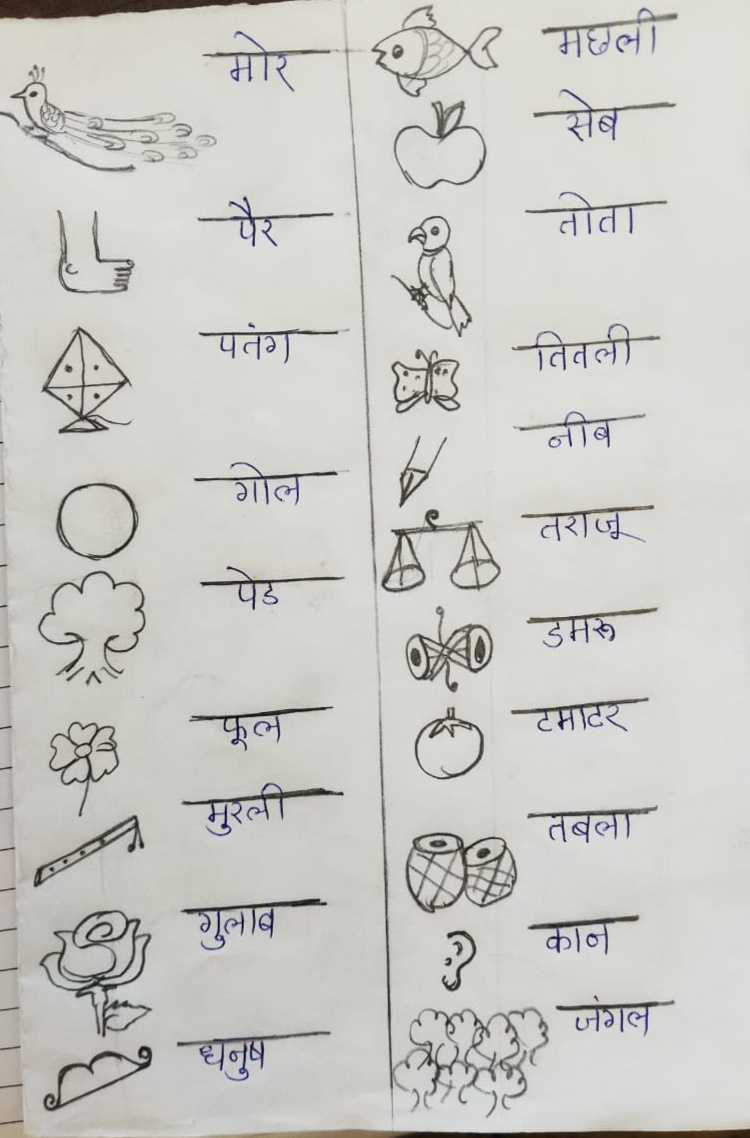 मोर
पैर
पतंग
गोल
पेड
फूल
मुरली
गुलाब
धनुष
मछली
सेब
तोता
तितली
नीब
तराजू
डमरू
टमाटर
तबला
कान
जंगल